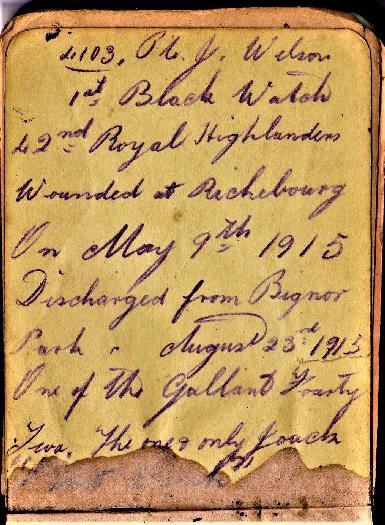 4103, Pt. J. Wilson
1st Black Watch
42nd Royal Highlanders
Wounded at Richebourg
On May 9th 1915
Discharged from Bignor
Park " August 23rd 1913
One of the Gallant Fourty
Two. The one & only Joack